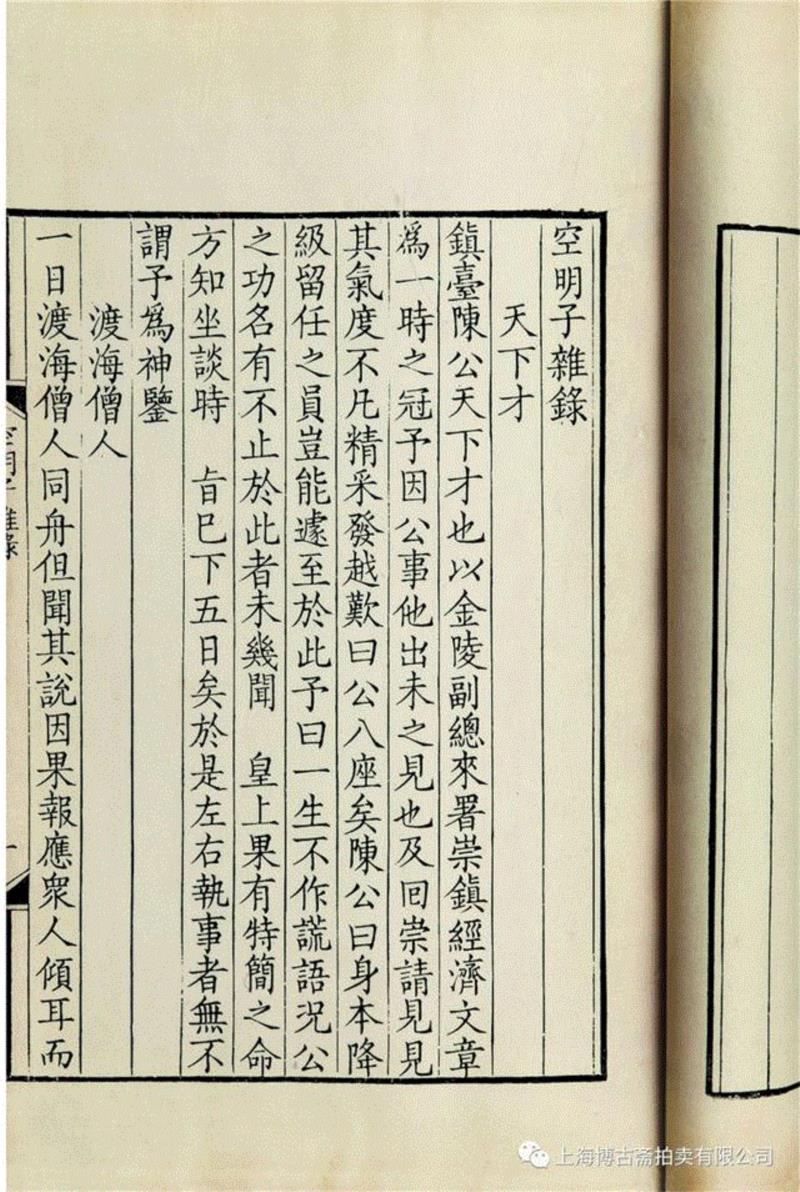 空明子雜錄
天下才
鎮臺陳公天下才也以金陵副總來署崇鎮經濟文章
爲一時之冠予因公事他出未之見也及回崇請見見
其氣度不凡精采發越歎曰公八座矣陳公曰身本降
級留任之員豈能遽至於此予曰一生不作謊語況公
之功名有不止於此者未幾聞　皇上果有特簡之命
方知坐談時　旨已下五日矣於是左右執事者無不
謂予爲神鑒
渡海僧人
一日渡海僧人同舟但聞其說因果報應衆人傾耳而
空明子雜錄
一
上海博古斋拍卖有限公司